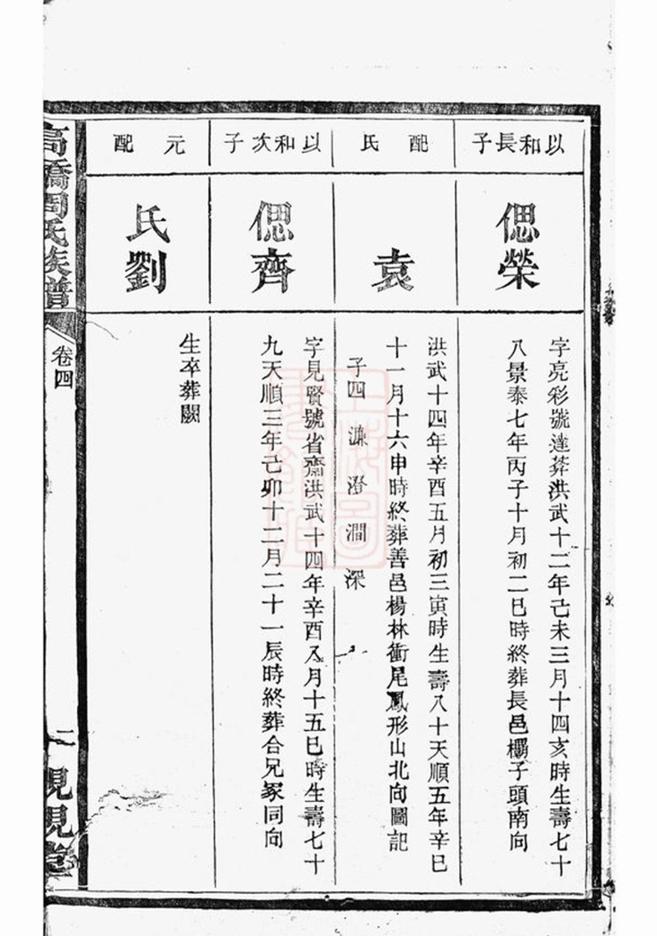 以和長子
偲榮
字亮彩號達葊洪武十二年己未三月十四亥時生壽七十
八景泰七年丙子十月初二巳時終葬長邑欛子頭南向
配氏
袁
洪武十四年辛酉五月初三寅時生壽八十天順五年辛巳
十一月十六申時終葬善邑楊林衝尾鳳形山北向圖記
子四 濂 澄 澗 深
以和次子
偲齊
字見賢號省齋洪武十四年辛酉八月十五巳時生壽七十
九天順三年己卯十二月二十一辰時終葬合兄冢同向
元配
劉氏
生卒葬闕
高橋周氏族譜
卷四
二